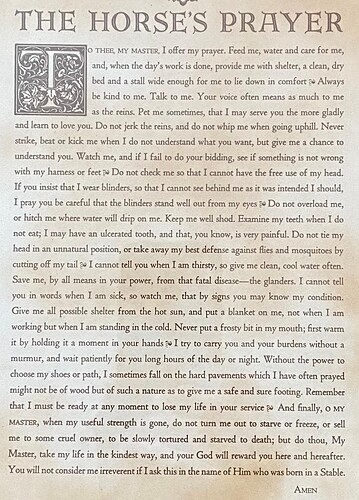 THE HORSE'S PRAYER
TO THEE, MY MASTER, I offer my prayer. Feed me, water and care for me,
and, when the day's work is done, provide me with shelter, a clean, dry
bed and a stall wide enough for me to lie down in comfort ❧ Always
be kind to me. Talk to me. Your voice often means as much to me
as the reins. Pet me sometimes, that I may serve you the more gladly
and learn to love you. Do not jerk the reins, and do not whip me when going uphill. Never
strike, beat or kick me when I do not understand what you want, but give me a chance to
understand you. Watch me, and if I fail to do your bidding, see if something is not wrong
with my harness or feet ❧ Do not check me so that I cannot have the free use of my head.
If you insist that I wear blinders, so that I cannot see behind me as it was intended I should,
I pray you be careful that the blinders stand well out from my eyes ❧ Do not overload me,
or hitch me where water will drip on me. Keep me well shod. Examine my teeth when I do
not eat; I may have an ulcerated tooth, and that, you know, is very painful. Do not tie my
head in an unnatural position, or take away my best defense against flies and mosquitoes by
cutting off my tail ❧ I cannot tell you when I am thirsty, so give me clean, cool water often.
Save me, by all means in your power, from that fatal disease—the glanders. I cannot tell
you in words when I am sick, so watch me, that by signs you may know my condition.
Give me all possible shelter from the hot sun, and put a blanket on me, not when I am
working but when I am standing in the cold. Never put a frosty bit in my mouth; first warm
it by holding it a moment in your hands ❧ I try to carry you and your burdens without a
murmur, and wait patiently for you long hours of the day or night. Without the power to
choose my shoes or path, I sometimes fall on the hard pavements which I have often prayed
might not be of wood but of such a nature as to give me a safe and sure footing. Remember
that I must be ready at any moment to lose my life in your service ❧ And finally, O MY
MASTER, when my useful strength is gone, do not turn me out to starve or freeze, or sell
me to some cruel owner, to be slowly tortured and starved to death; but do thou, My
Master, take my life in the kindest way, and your God will reward you here and hereafter.
You will not consider me irreverent if I ask this in the name of Him who was born in a Stable.
AMEN